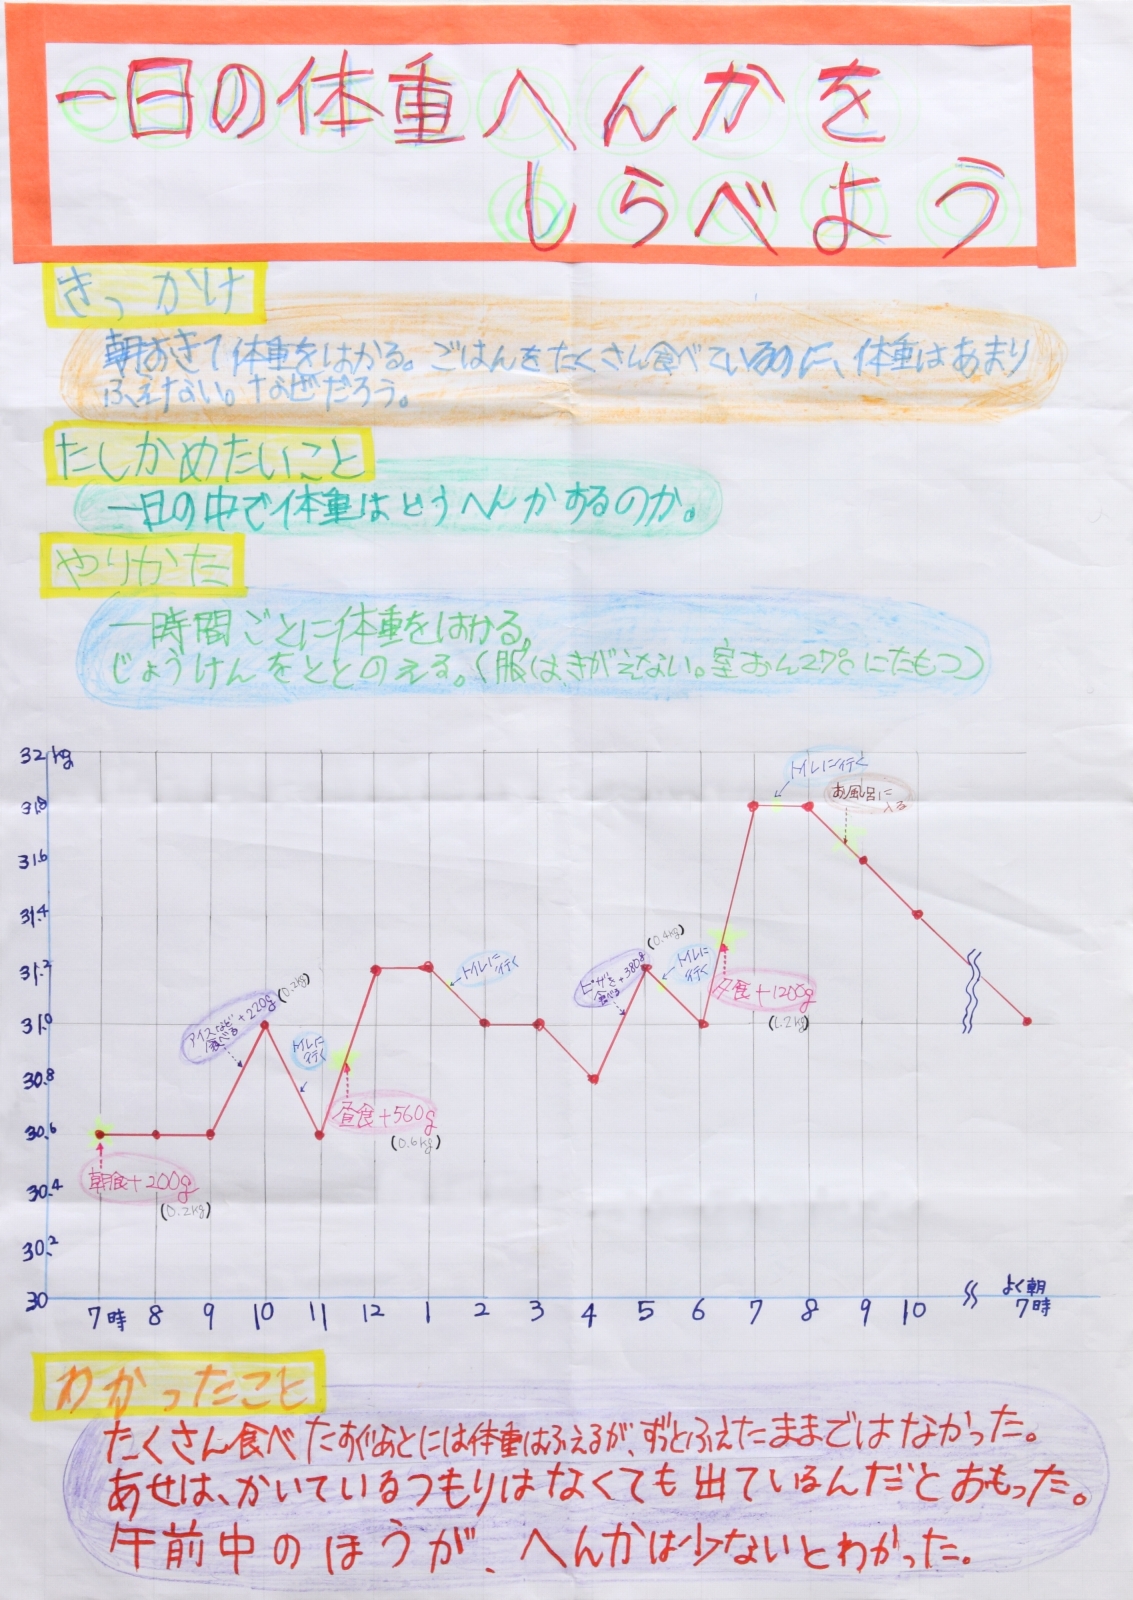 一日の体重へんかを
しらべよう
きっかけ
朝おきて体重をはかる。ごはんをたくさん食べているのに、体重はあまり
ふえない。なぜだろう。
たしかめたいこと
一日の中で体重はどうへんかするのか。
やりかた
一時間ごとに体重をはかる。
じょうけんをととのえる。(服は、きがえない。室おん27℃にたもつ)
32 kg
31.8
31.6
31.4
31.2
31.0
30.8
30.6
30.4
30.2
30
朝食+200g
(0.2kg)
アイスなど
食べる+220g
(0.2kg)
トイレに
行く
昼食+560g
(0.6kg)
トイレに
行く
ピザを
食べる+380g
(0.4kg)
トイレに
行く
夕食+1200g
(1.2kg)
トイレに行く
お風呂に
入る
7時 8 9 10 11 12 1 2 3 4 5 6 7 8 9 10 よく朝
7時
わかったこと
たくさん食べたすぐあとには体重はふえるが、ずっとふえたままではなかった。
あせは、かいているつもりはなくても出ているんだとおもった。
午前中のほうが、へんかは少ないとわかった。